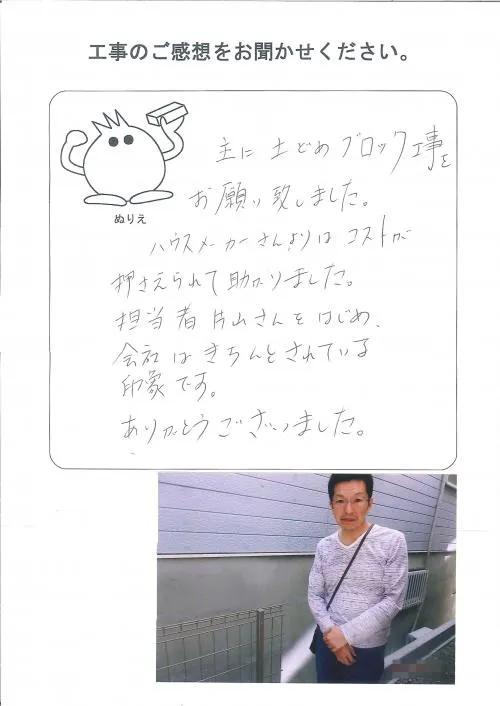 工事のご感想をお聞かせください。
ぬりえ
主に土どめブロック工事を
お願い致しました。
ハウスメーカーさんよりはコストが
押さえられて助かりました。
担当者片山さんをはじめ、
会社はきちんとされている
印象です。
ありがとうございました。